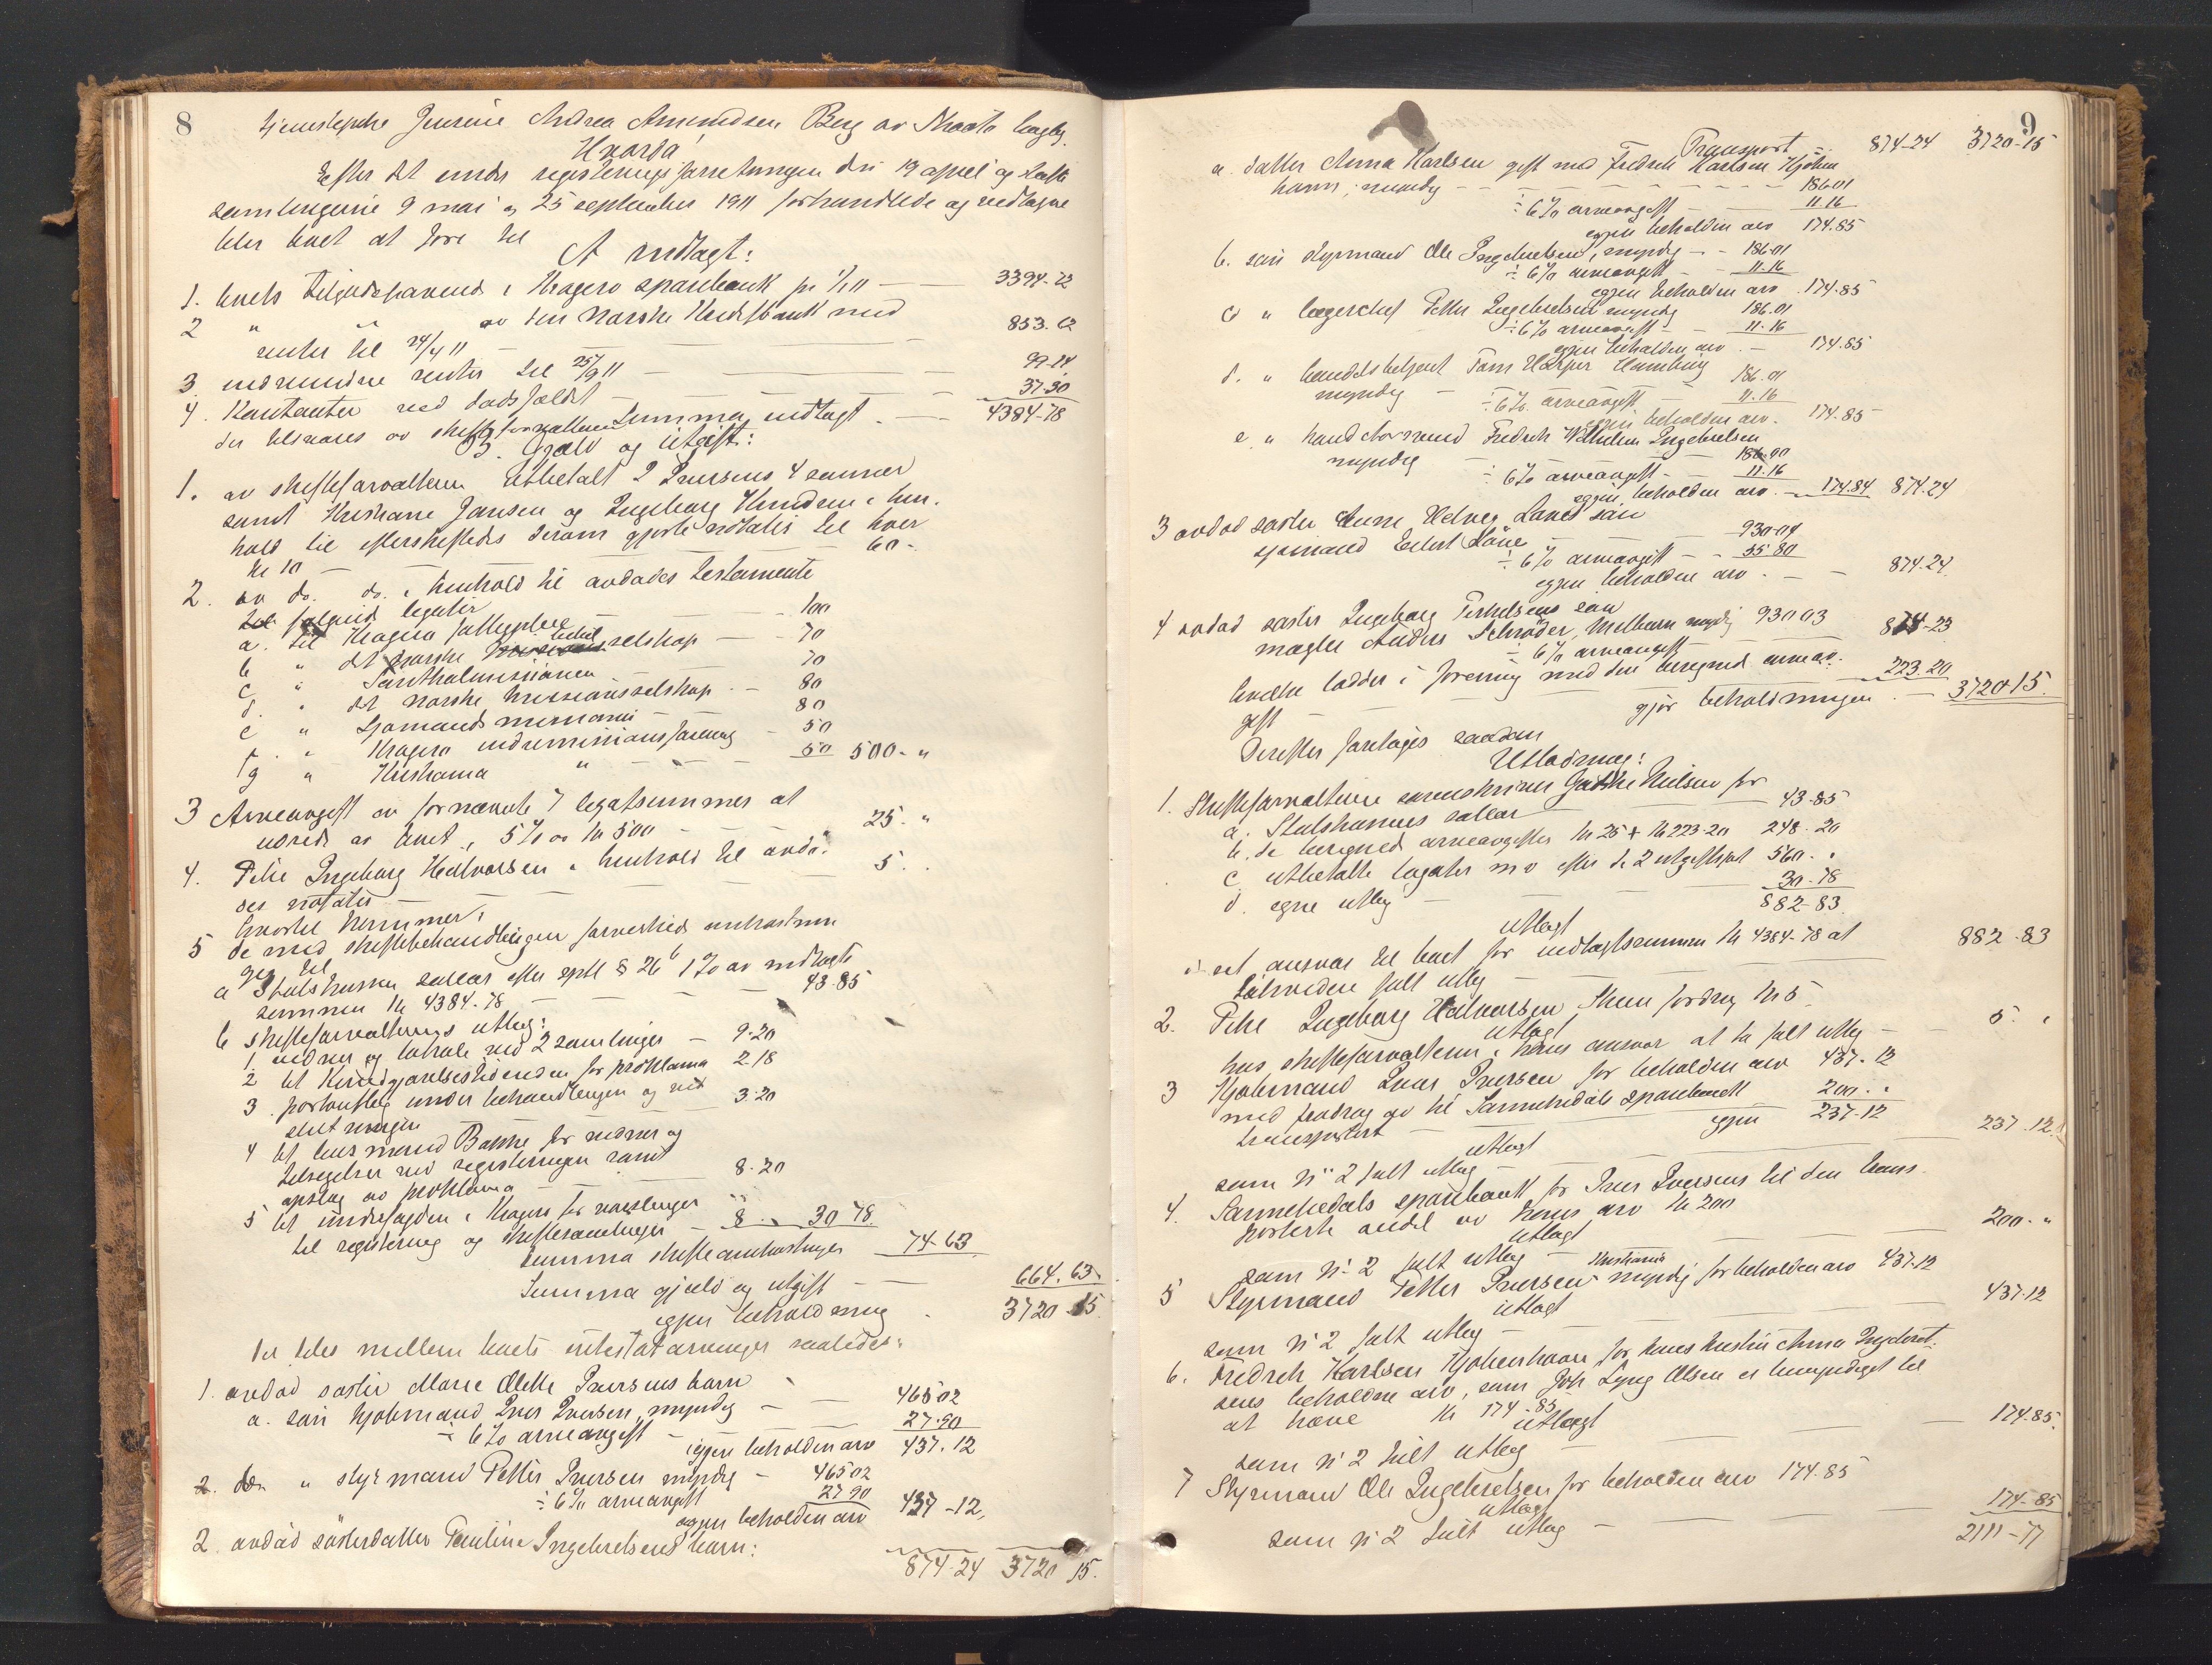 8
tjenestepike Jensine Andrea Amundsen Berg av Skaatø
Hvorda
Efter det under registeringsforretningen den 19 april og skifte
samlingerne 9 mai og 25 september 1911 forhandlede og vedtagne
blir boet at føre til
A Indtægt:
1. boets tilgodehavende i Kragerø sparebank pr 1/1 11 — 3394-72
2 " " av den Norske Kreditbank med
renter til 24/4 11 — 853.62
3. indvundne renter til 25/9 11 — 99-14
4. Kontanter ved dødsfaldet — 37-30
der tilsvares av skifteforvalteren Summa indtægt — 4384-78
B. Gjæld og Utgift:
1. av skifteforvalteren utbetalt 2 Iversens 4 sønner
samt Kristiane Jansen og Ingeborg Knudsen i hen-
hold til efterskiftedes derom gjorte notater til hver
kr 10 — 60-
2. av do. do. i henhold til avdødes testamente
til følgende legater
a. til Kragerø fattigpleie — 100
b " det norske bibelselskap — 70
c " Santhalmissionen — 70
d. " det norske missionsselskap — 80
e " Sjømandsmissionen — 80
f. " Kragerø indremissionsforening — 50
g " Kristiania " — 50 500-"
3 Arveavgift av fornævnte 7 legatsummer at
utrede av boet, 5% av kr 500 — 25-"
4. Pike Ingeborg Halvorsen i henhold til avdø-
des notater — 5.
hvortil kommer:
5 de med skiftebehandlingen forvoldte omkostnin
ger til
a Statskassen sallær efter sptl § 26 b 1% av indtægts
summen kr 4384-78 — 43-85
b skifteforvalterens utlæg:
1 vidner og lokale ved 2 samlinger — 9-20
2 til Kundgjørelsestidenden for proklama 2-18
3. portoutlæg under behandlingen og ved
slutningen 3-20
4 til lensmand Bakke for vidner og
tilsigelser ved registeringen samt
opslag av proklama 8-20
5 til underfogden i Kragerø for varslinger
til registering og skiftesamlinger — 8. " 30-78
Summa skifteomkostninger 74-63
Summa gjæld og utgift — 664.63
igjen beholdning 3720-15
der deles mellem boets intestatarvinger saaledes:
1. avdød søster Marie Olette Iversens barn
a. søn Kjøbmand Iver Iversen, myndig — 465 02
÷ 6% arveavgift — 27-90
igjen beholden arv 437.12
" styrmand Petter Iversen myndig — 465 02
÷ 6% arveavgift 27 90
igjen beholden arv 437-12
2. avdød søsterdatter Pauline Ingebretsens barn:
874-24 3720 15.
9
Transport 874-24 3720-15
a. datter Anna Karlsen gift med Fredrik Karlsen Kjøben
havn, myndig — 186 01
÷ 6% arveavgift — 11.16
igjen beholden arv 174.85
b. søn styrmand Ole Ingebretsen, myndig — 186-01
÷ 6% arveavgift — 11-16
igjen beholden arv 174-85
c " lagerchef Petter Ingebretsen myndig 186.01
÷ 6% arveavgift — 11-16
igjen beholden arv — 174-85
d. " handelsbetjent Tom Harper Hamburg
myndig — 186.01
÷ 6% arveavgift — 11-16
igjen beholden arv. 174-85
e " Fredrik Wilhelm Ingebretsen
myndig — 186.00
÷ 6% arveavgift — 11-16
igjen beholden arv — 174.84 874.24
3 avdød søster Anne Helvig Lønes søn
sjømand Eilert Løne — 930-04
÷ 6% arveavgift — 55-80
igjen beholden arv — 874-24
4 avdød søster Ingeborg Terkelsens søn
mægler Anders Schrøder, myndig 930 03
÷ 6% arveavgift — 874-23
hvilke lodder i forening med den beregned arveav-
gift — 223.20
gjør beholdningen — 3720-15.
Derefter foretages saadan
Utlodning:
1. Skifteforvalteren sorenskriver Gødke Nielsen for
a. Statskassens sallær — 43-85
b. de beregned arveavgifter kr 25 + kr 223-20 248-20
c. utbetalte legater m v efter de 2 utgiftspost 560. "
d. egne utlæg — 30-78
882-83
Utlagt
i sit ansvar til boet for indtægtssummen kr 4384-78 at
likvidere fuldt utlæg — 882-83
2. Pike Ingeborg Halvorsen Skien fordring kr 5
Utlagt
hos skifteforvalteren i hans ansvar at ta fuldt utlæg — 5. "
3 Kjøbmand Iver Iversen for beholden arv 437-12
med fradrag av til Sannikedals sparebank
transportert — 200. "
igjen 237-12
Utlagt
som No 2 fuldt utlæg — 237.12
4. Sannikedals sparebank for Iver Iversens til den trans-
porterte andel av hans arv kr 200
Utlagt
som No 2 fuldt utlæg — 200-"
5 Styrmand Petter Iversen Kristiania myndig for beholden arv 437-12
Utlagt
som No 2 fuldt utlæg — 437-12
6. Fredrik Karlsen Kjøbenhavn for hans hustru Anna Ingebret-
sens beholdne arv, som Joh Lyng Olsen er bemyndiget til
at hæve kr 174-85
Utlagt
som No 2 fuldt utlæg — 174.85
7 Styrmand Ole Ingebretsen for beholden arv 174.85
Utlagt
som No 2 fuldt utlæg — 174-85
2111-77